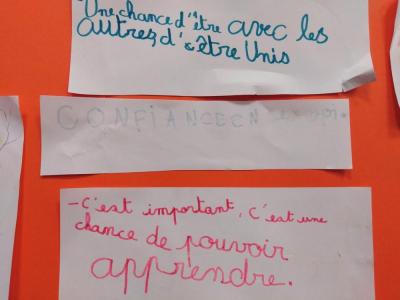 Une chance d'être avec les
autres, d'être Unis
CONFIANCE EN
- C'est important, c'est une
chance de pouvoir
apprendre.